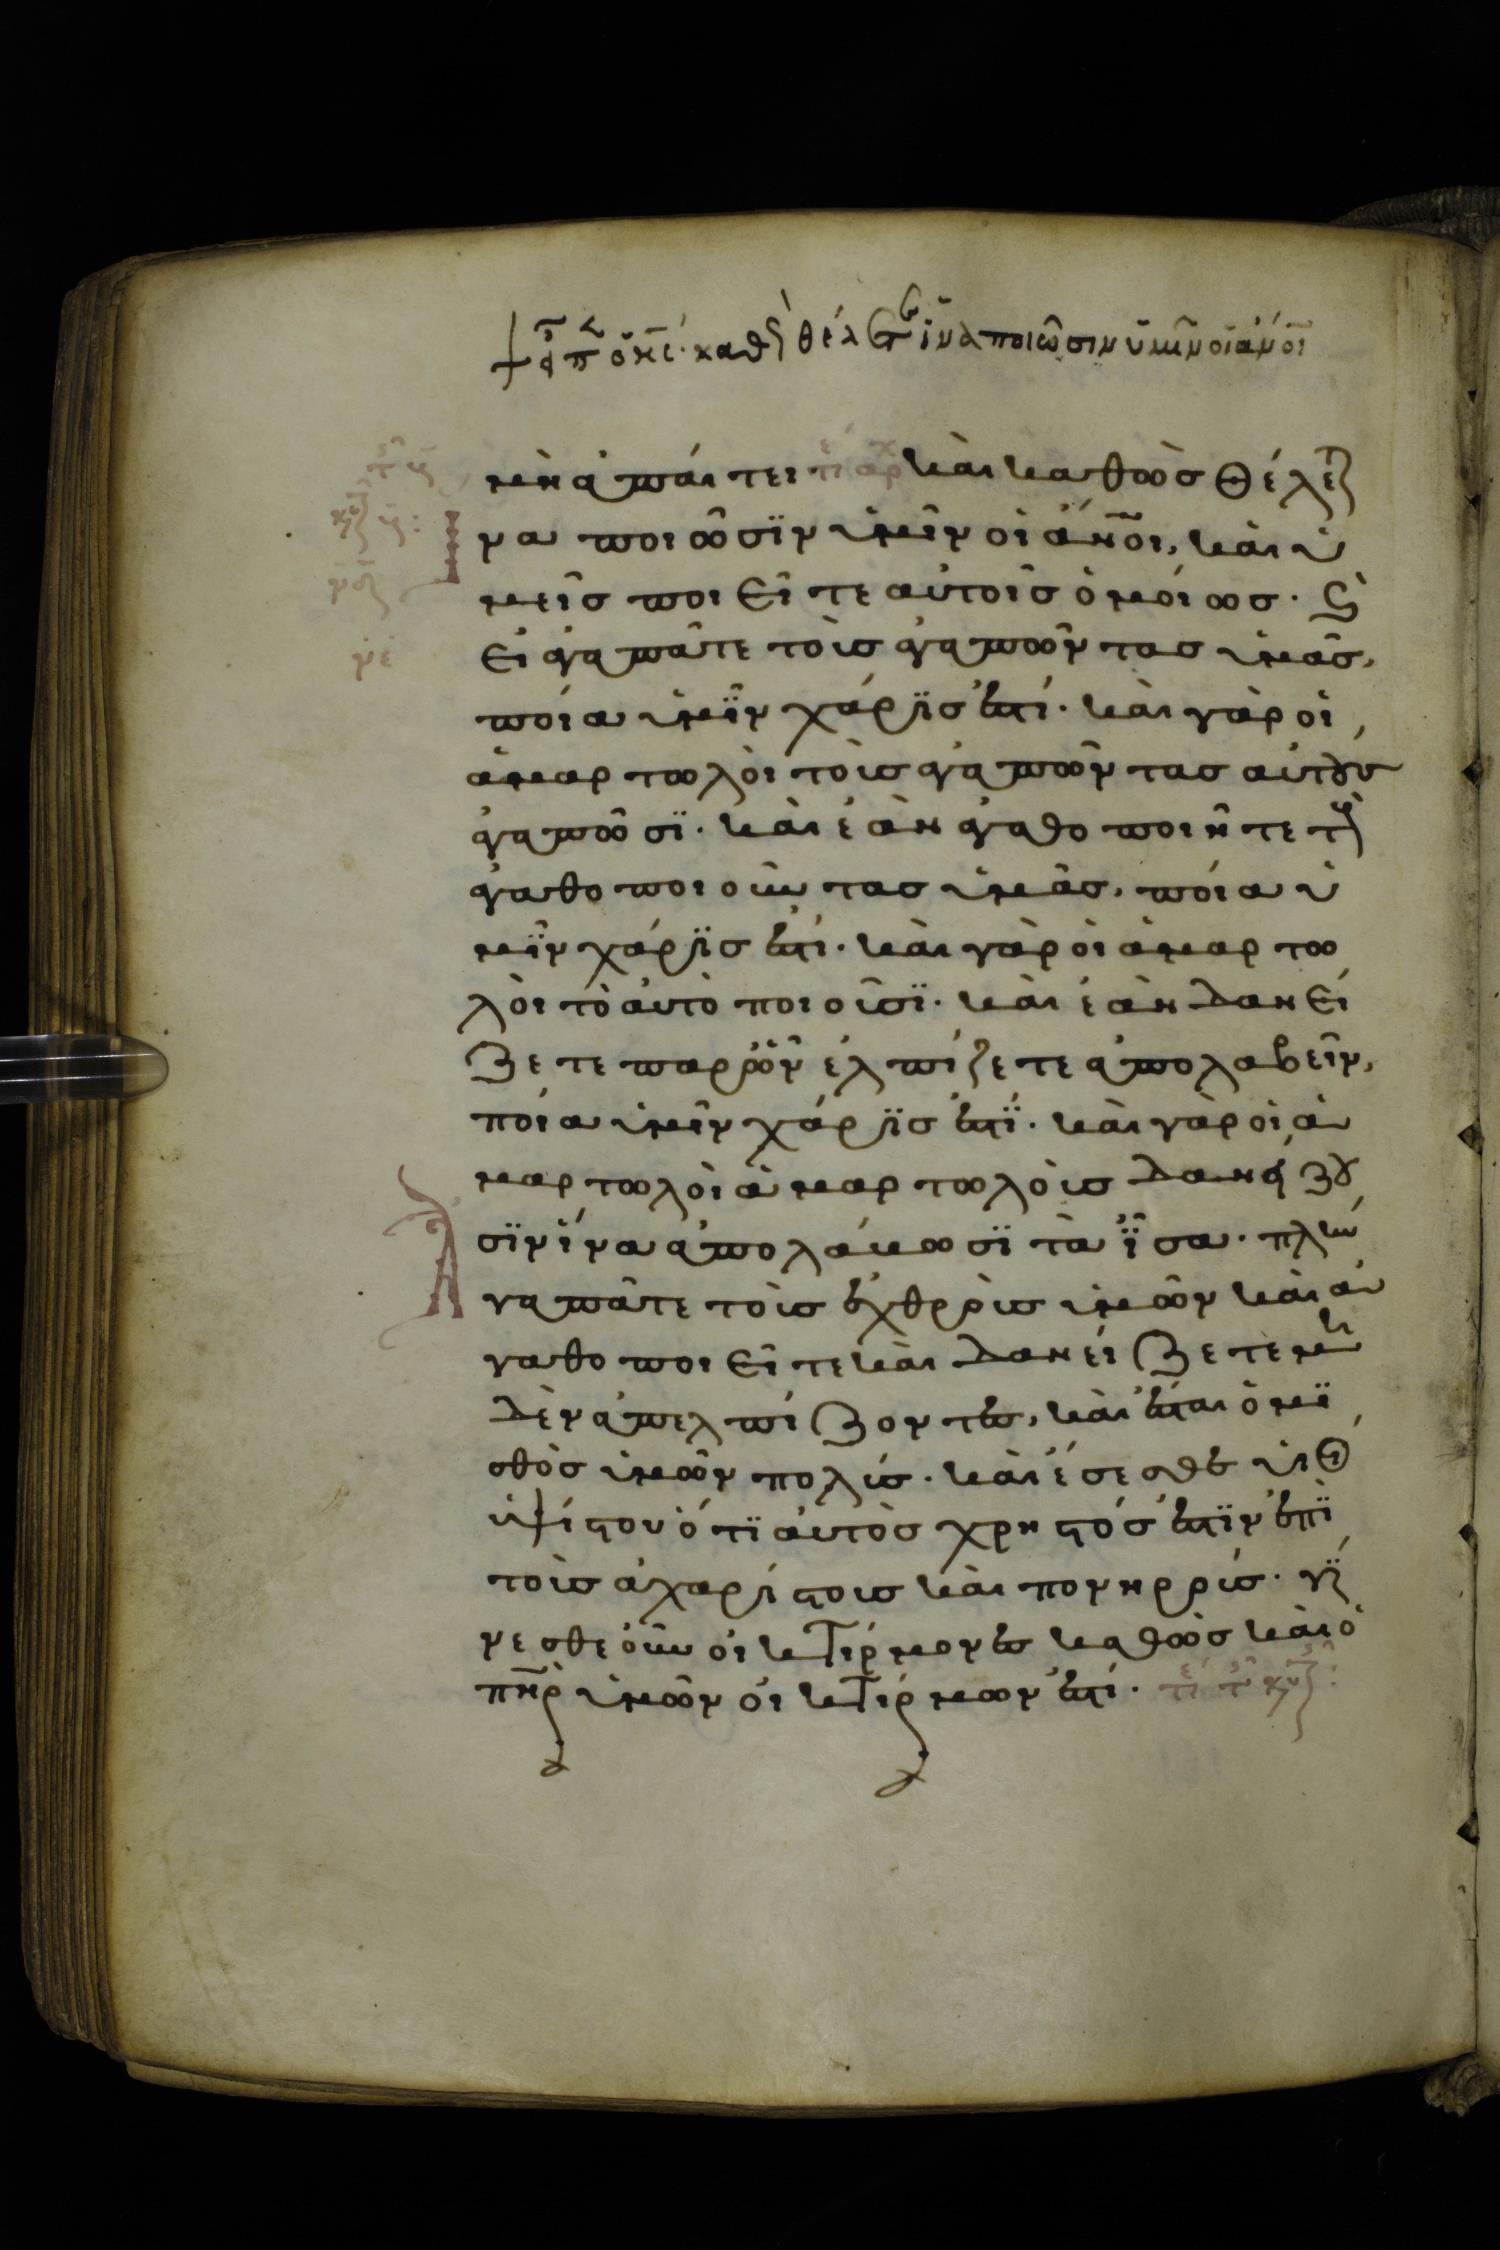 εἶπεν ὁ κς· καθὼς θέλετε ἵνα ποιῶσιν ὑμῖν οἱ ἄνοι
μὴ ἀπαίτει τέ ἀρχ καὶ καθὼσ θέλετε ἵ
να ποιῶσϊν ὑμῖν οἱ ἄνοι, καὶ ὑ
μεῖσ ποιεῖτε αὐτοῖσ ὁμοίωσ. καὶ
εἰ ἀγαπᾶτε τοὺσ ἀγαπῶντασ ὑμᾶσ,
ποία ὑμῖν χάρϊσ ἐστί. καὶ γὰρ οἱ
ἁμαρτωλοὶ τοὺσ ἀγαπῶντασ αὐτοὺσ
ἀγαπῶσϊ. καὶ ἐὰν ἀγαθοποιῆτε τοὺσ
ἀγαθοποιοῦντασ ὑμᾶσ, ποία ὑ
μῖν χάρϊσ ἐστί. καὶ γὰρ οἱ ἁμαρτω
λοὶ τὸ αὐτὸ ποιοῦσϊ. καὶ ἐὰν δανεί
ζετε παρ ὧν ἐλπίζετε ἀπολαβεῖν,
ποία ὑμῖν χάρϊσ ἐστΐ. καὶ γὰρ οἱ ἁ
μαρτωλοὶ ἁμαρτωλοῖσ δανείζου
σϊν ἵνα ἀπολάβωσϊ τὰ ἴσα. πλὴν
ἀγαπᾶτε τοὺσ ἐχθροὺσ ὑμῶν καὶ ἀ
γαθοποιεῖτε καὶ δανείζετε μη
δὲν ἀπελπίζοντεσ, καὶ ἔσται ὁ μϊ
σθὸσ ὑμῶν πολύσ. καὶ ἔσεσθε υἱοὶ
ὑψίστου ὅτϊ αὐτὸσ χρηστόσ ἐστϊν ἐπῒ
τοὺσ ἀχαρίστουσ καὶ πονηρούσ. γί
νεσθε οὖν οἰκτίρμονεσ καθὼσ καὶ ὁ
πηρ ὑμῶν οἰκτίρμων ἐστί. τέ τῆσ κυρ